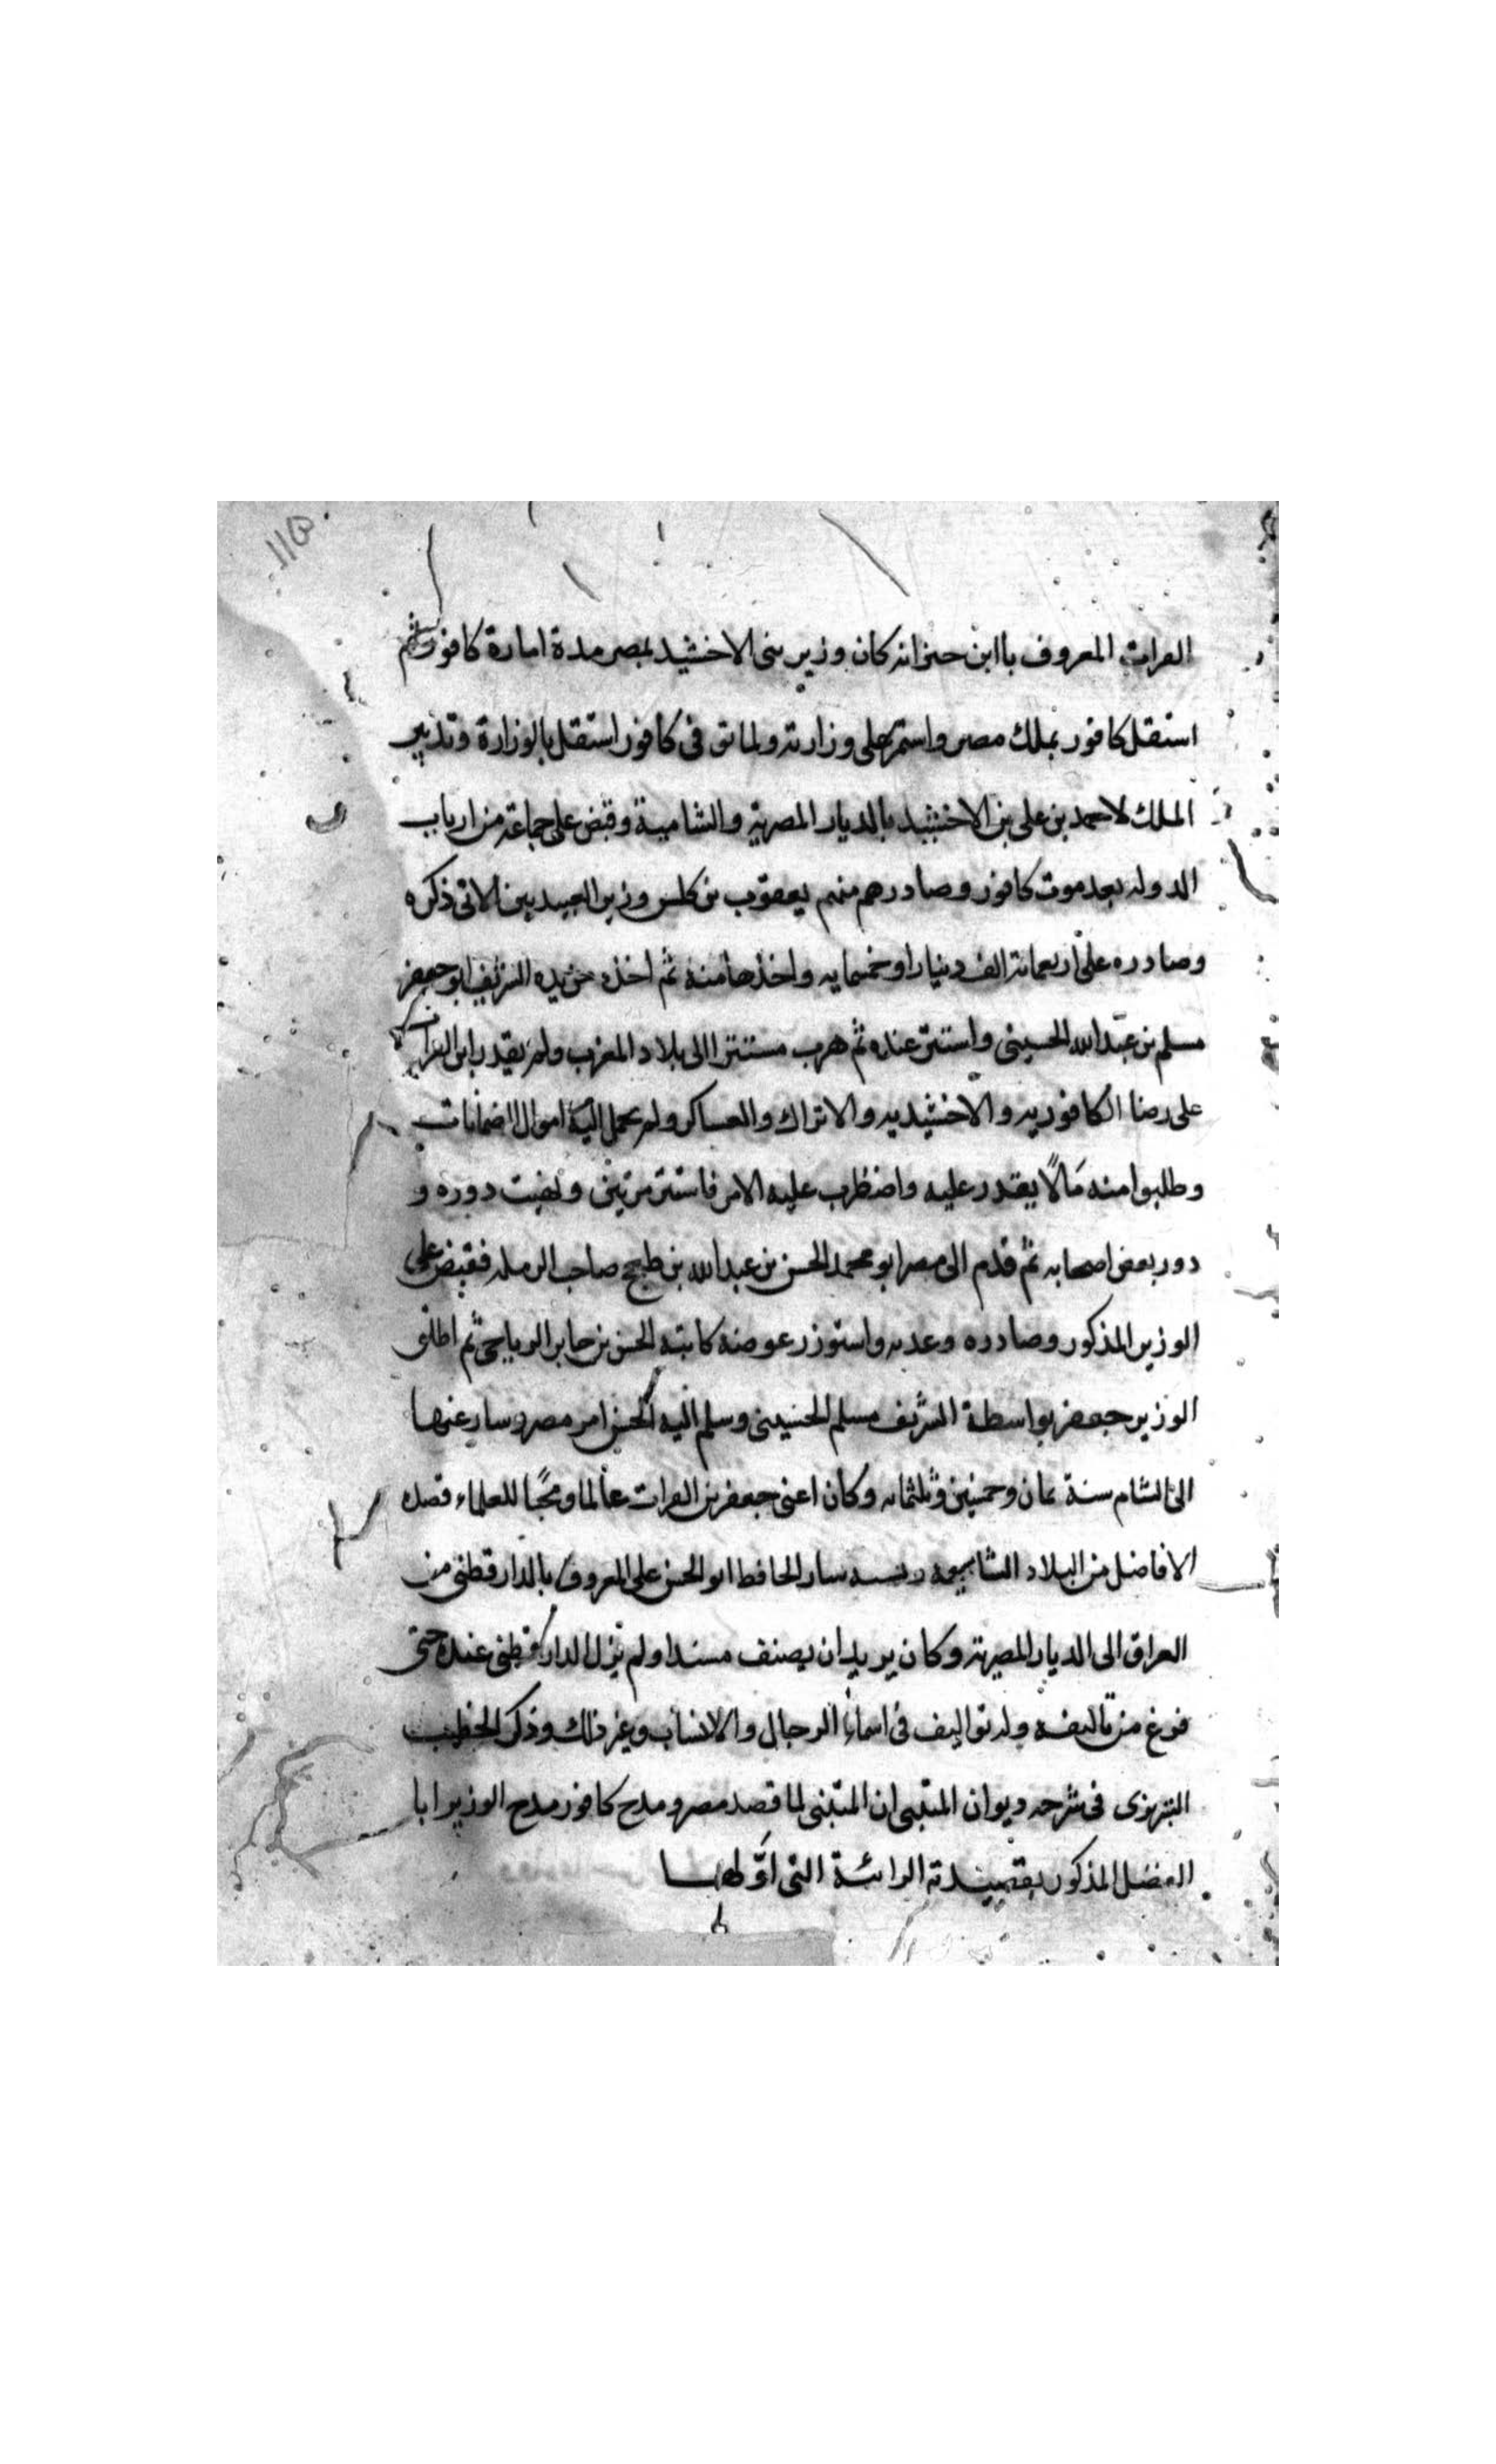 الفرات المعروف باابن حنزانه كان وزير بنى الاخشيد بمصر مدة امارة كافور ثم
استقل كافور بملك مصر واستمر على وزارته ولما توفى كافور استقل بالوزارة وتدبير
الملك لاحمد بن على بن الاخشيد بالديار المصرية والشامية وقبض على جماعة من ارباب
الدوله بعد موت كافور وصادرهم منهم يعقوب بن كلس وزير العبيديين الاتى ذكره
وصادره على اربعمائة الف دينار او خمسمايه واخذها منه ثم اخذه من يده الشريف ابو جعفر
مسلم بن عبد الله الحسينى واستتر عنده ثم هرب مستترا الى بلاد المغرب ولم يقدر ابن الفرات
على رضا الكافوريه والاخشيديه والاتراك والعساكر ولم يحمل اليه اموال الضمانات
وطلبوا منه مالا يقدر عليه واضطرب عليه الامر فاستتر مرتين ونهبت دوره و
دور بعض اصحابه ثم قدم الى مصر ابو محمد الحسن بن عبد الله بن طبج صاحب الرمله فقبض على
الوزير المذكور وصادره وعدبه واستوزر عوضه كاتبه الحسن بن جابر الرياحى ثم اطلق
الوزير جعفر بواسطة الشريف مسلم الحسينى وسلم اليه الحسن امر مصر وسار عنها
الى الشام سنة ثمان وخمسين وثلثمائه وكان اعنى جعفر بن الفرات عالما ومحبا للعلماء قصده
الافاضل من البلاد الشاسعه وبسببه سار الحافط ابو الحسن على المعروف بالدارقطنى من
العراق الى الديار المصرية وكان يريد ان يصنف مسندا ولم يزل الدارقطنى عنده حتى
فرغ من تاليفه وله تواليف فى اسماء الرجال والانساب وغير ذلك وذكر الخطيب
التبريزى فى شرحه ديوان المتنبى ان المتنبى لما قصد مصر ومدح كافور مدح الوزير ابا
الفضل المذكور بقصيدته الرائة التى اولها